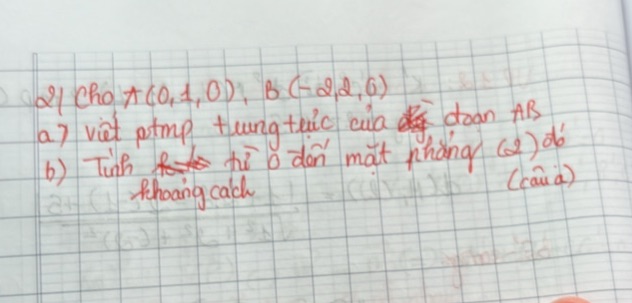 2) Cho A(0,1,0), B(-2,2,6)
a) viết ptmp trung trực của đoạn AB
b) Tính từ O đến mặt phẳng (2) đó
khoảng cách (câu a)